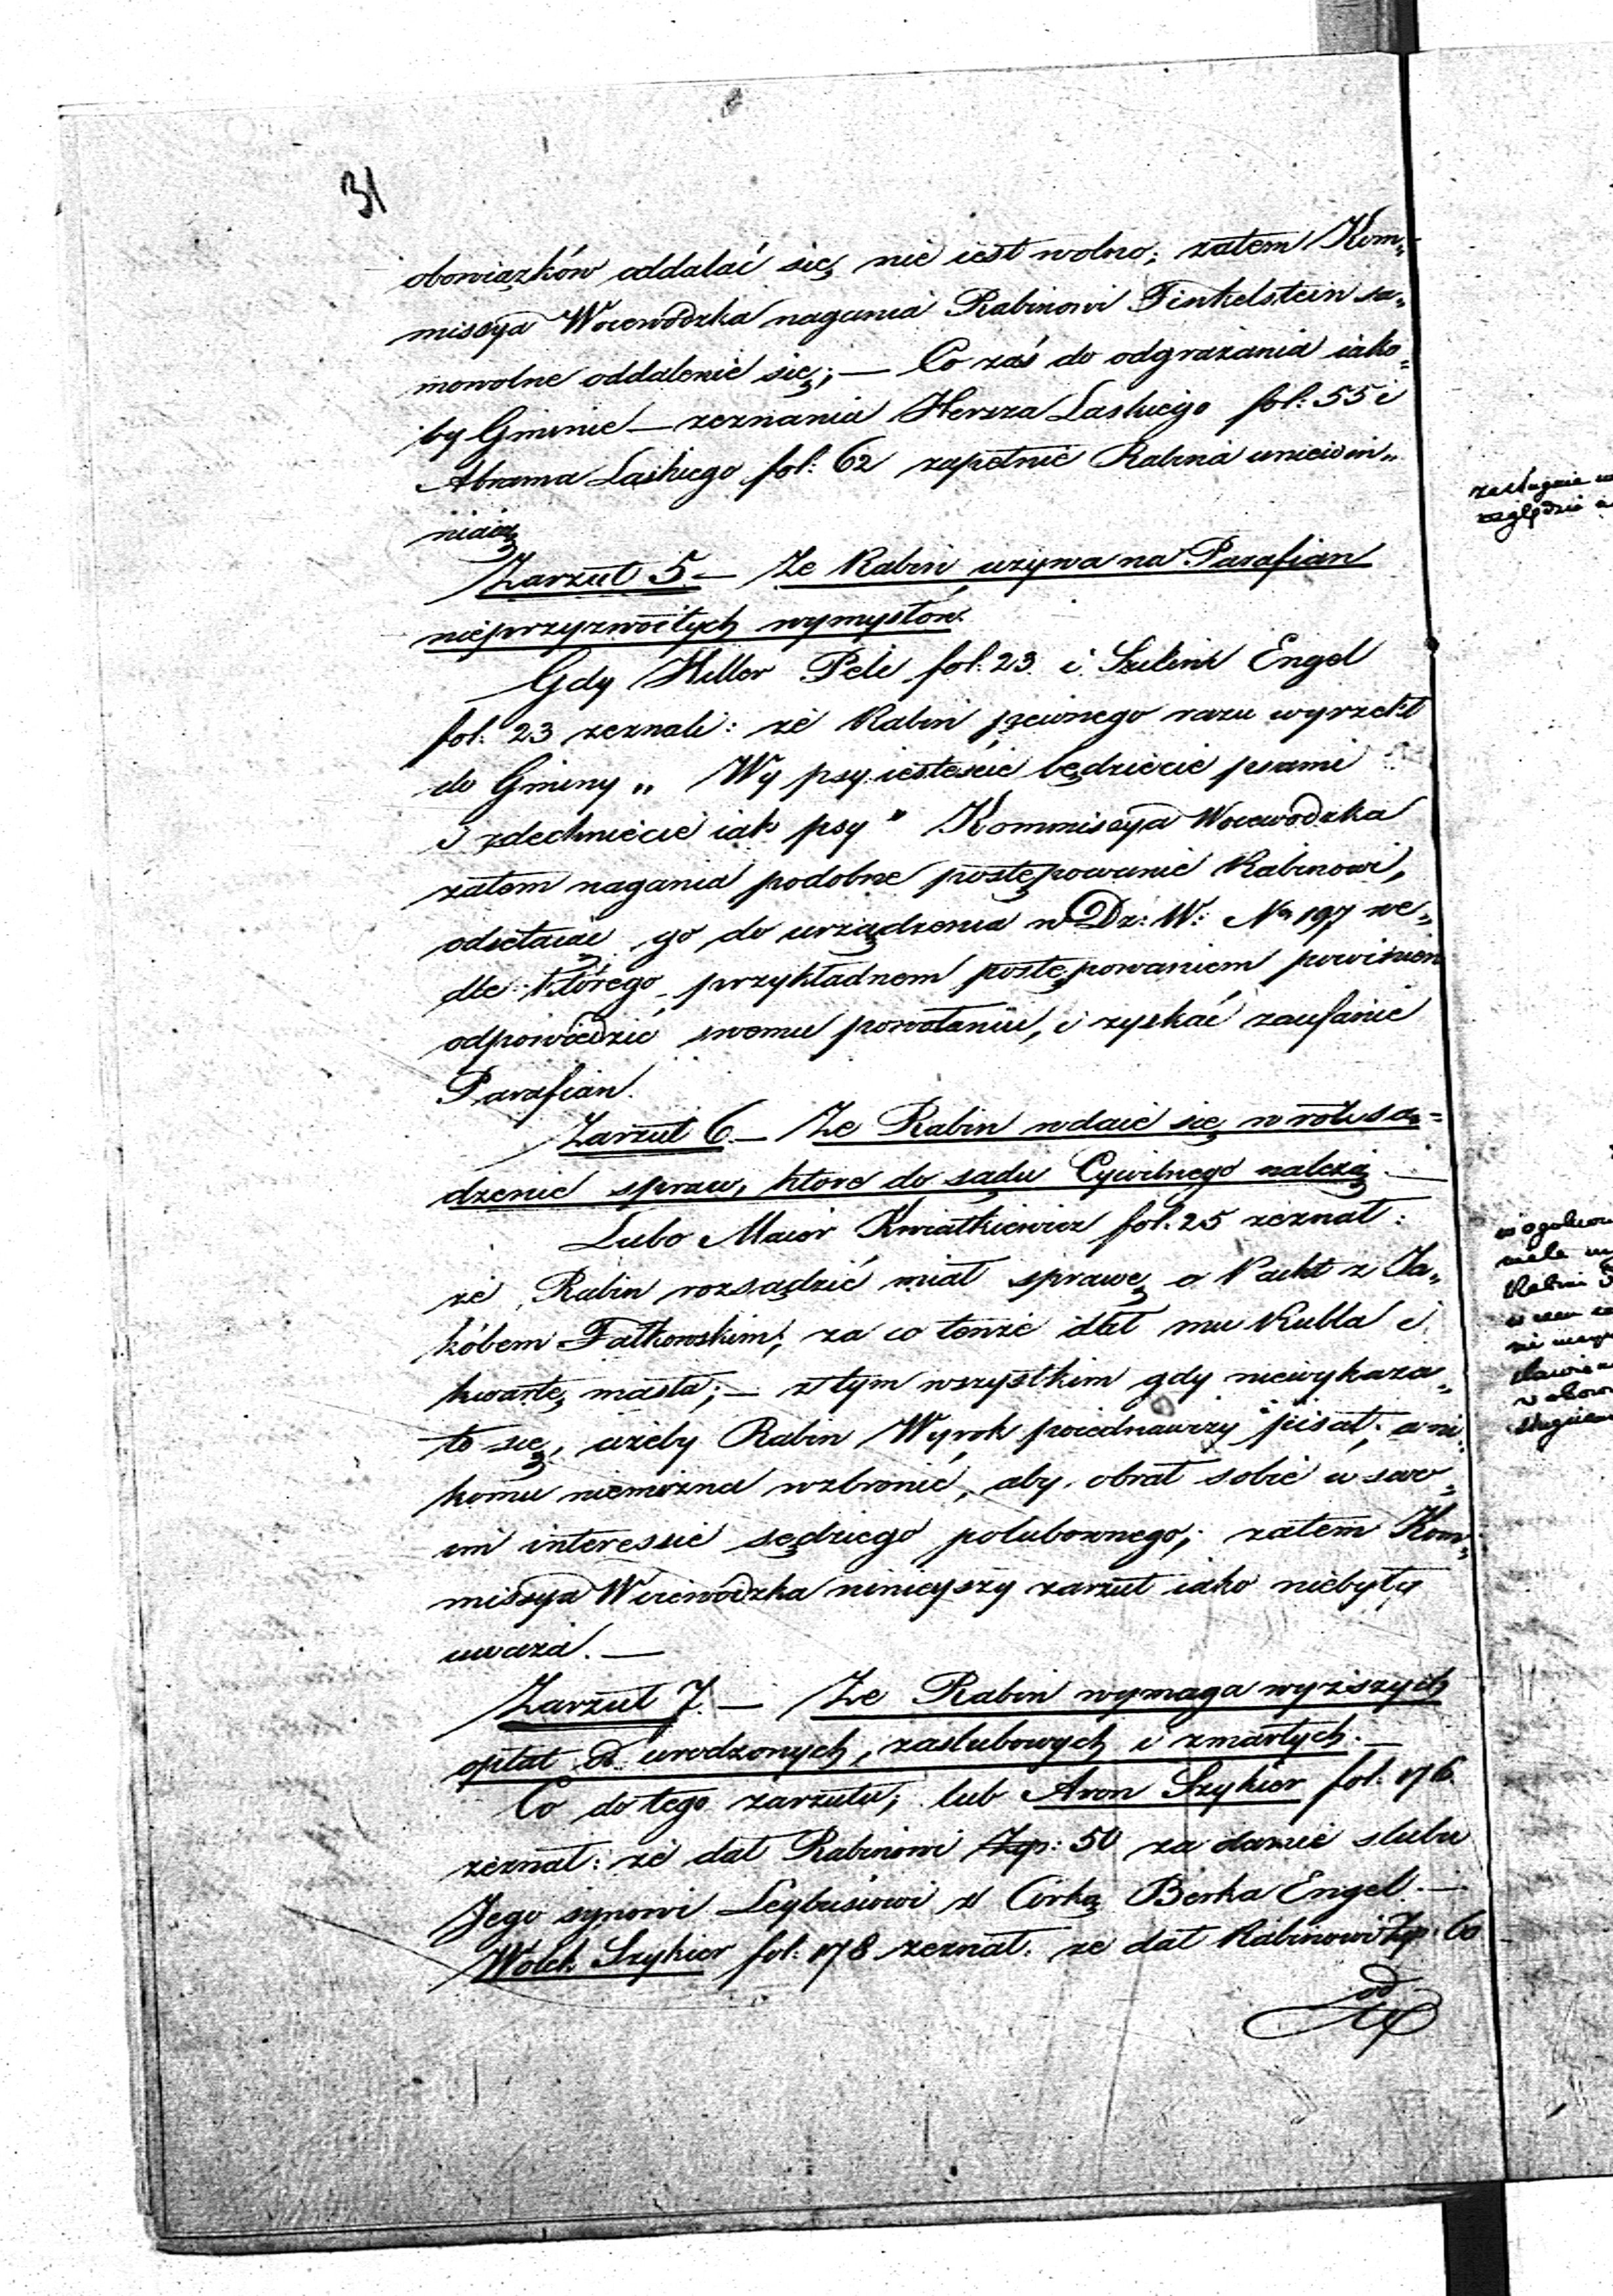 31
obowiązków oddalać się nie iest wolno; zatem Kom„
missya Woiewódzka nagania Rabinowi Finkelstein sa„
mowolne oddalenie się; — Co zaś do odgrażania iako„
by Gminie — zeznania Hersza Laskiego fol: 55 i
Abrama Laskiego fol: 62 zupełnie Rabina uniewin„
niaią
Zarzut 5 — Że Rabin używa na Parafian
nieprzyzwoitych wymysłów.
Gdy Hiller Pele fol. 23. i Engel
fol. 23 zeznali: że Rabin pewnego razu wyrzekł
do Gminy „ Wy psy iesteście będziecie psami
i zdechniecie iak psy " Kommissya Woiewódzka
zatem nagania podobne postępowanie Rabinowi,
odsełaiąc go do urządzenia w Dz: W: No 197 we„
dle którego przykładnem postępowaniem powinien
odpowiedzić swemu powołaniu, i zyskać zaufanie
Parafian.
Zarzut 6 — Że Rabin wdaie się w rozsą=
dzenie spraw, które do sądu Cywilnego należą —
Lubo Maior Kwiatkiewicz fol. 25 zeznał:
że Rabin rozsądzić miał sprawę o Pacht z Ja„
kóbem Fałkowskim, za co tenże dał mu Rubla i
kwartę masła; — z tym wszystkim gdy niewykaza„
ło się, ażeby Rabin Wyrok poiednawczy pisał; a ni„
komu niemożna wzbronić, aby obrał sobie w swo„
im interessie sędziego polubownego; zatem Kom„
missya Woiewódzka ninieyszy zarzut iako niebyły
uważa. —
Zarzut 7. — Że Rabin wymaga wyższych
opłat od urodzonych, zaslubowych i zmarłych. —
Co do tego zarzutu; lub Aron Szykier fol: 176
zeznał: że dał Rabinowi Zp: 50 za danie slubu
Jego synowi Leybusiowi z Córką Berka Engel. —
Wolek Szykier fol: 178 zeznał. że dał Rabinowi Zp. 60
od